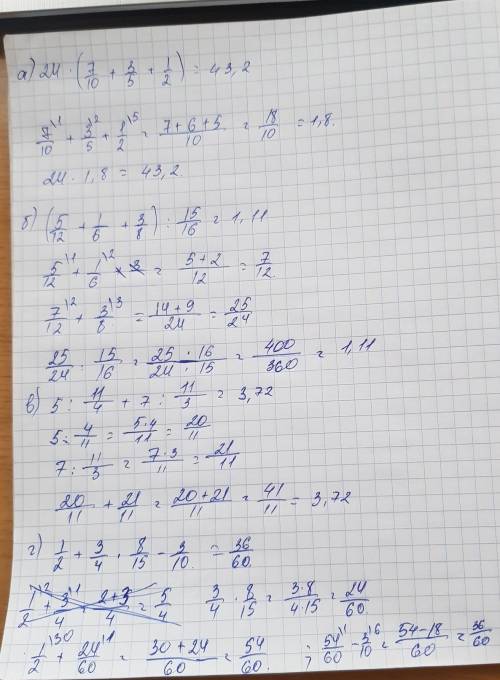 а) 24 · (7/10 + 3/5 + 1/2) = 43,2
7/10\1 + 3/5\2 + 1/2\5 = 7+6+5/10 = 18/10 = 1,8.
24 · 1,8 = 43,2.
б) (5/12 + 1/6 + 3/8) : 15/16 = 1,11
5/12\1 + 1/6\2 = 5+2/12 = 7/12.
7/12\2 + 3/8\3 = 14+9/24 = 25/24
25/24 · 15/16 = 25 · 16/24 · 15 = 400/360 = 1,11
в) 5 : 11/4 + 7 : 11/3 = 3,72
5 : 4/11 = 5·4/11 = 20/11
7 : 11/3 = 7·3/11 = 21/11
20/11 + 21/11 = 20+21/11 = 41/11 = 3,72
г) 1/2 + 3/4 · 8/15 - 3/10 = 36/60.
1/2\2 + 3/4\1 = 2+3/4 = 5/4 3/4 · 8/15 = 3·8/4·15 = 24/60
1/2\30 + 24/60\1 = 30+24/60 = 54/60. ; 54/60\1 - 3/10\6 = 54-18/60 = 36/60